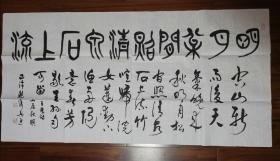 明月松間照清泉石上流
空山新
雨後天
氣晚來
秋明月松
間照清泉
石上流竹
喧歸浣
女蓮動下
漁舟隨
意春芳
歇王孫自
可留
山居秋暝